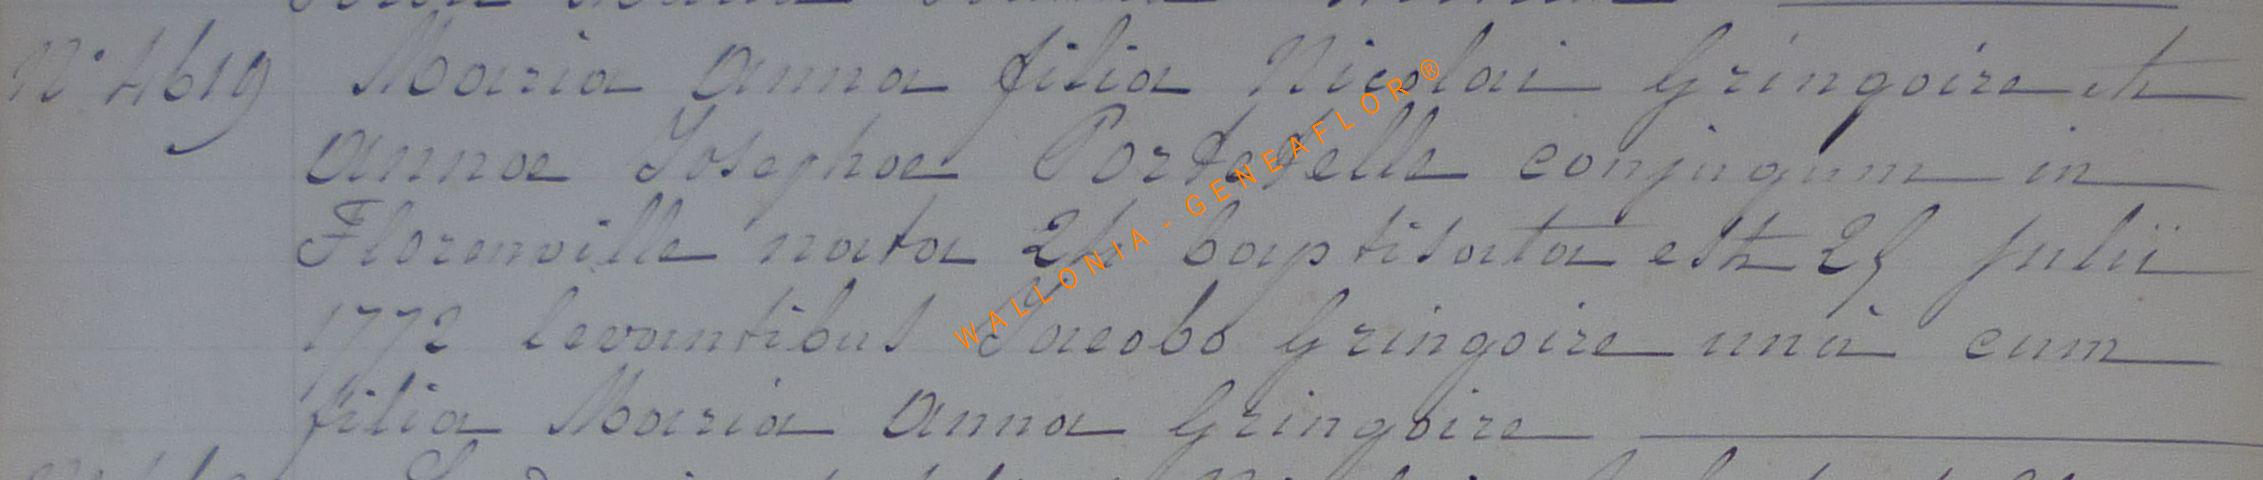 N° 4619 Maria Anna filia Nicolai Gringoire et
Annae Josephae Portefelle conjugum in
Florenville nata 24 baptisata est 25 Julii
1772 levantibus Jacobo Gringoire unà cum
filia Maria Anna Gringoire
WALLONIA - GENEAFLOR®